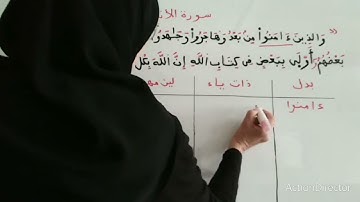 سورة الأنـ
« وَالذِينَ ءَامَنُواْ مِنۢ بَعْدُ وَهَاجَرُواْ وَجَٰهَدُ
بَعْضُهُمُۥٓ أَوْلَىٰ بِبَعْضٖ فِے كِتَٰبِ اللَّهِ إِنَّ اللَّهَ بِكُلِّ
بدل ذات ياء لين مهـ
ءامنوا
ActionDirector